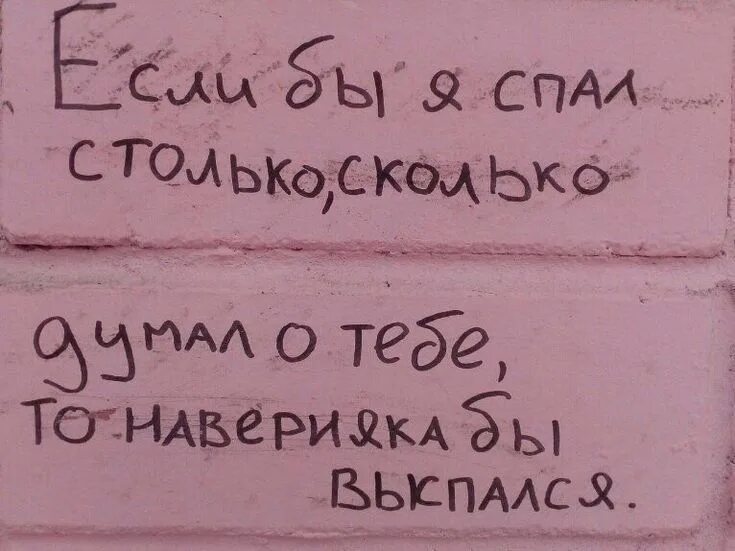 Если бы я спал
столько, сколько
думал о тебе,
то наверияка бы
выспался.